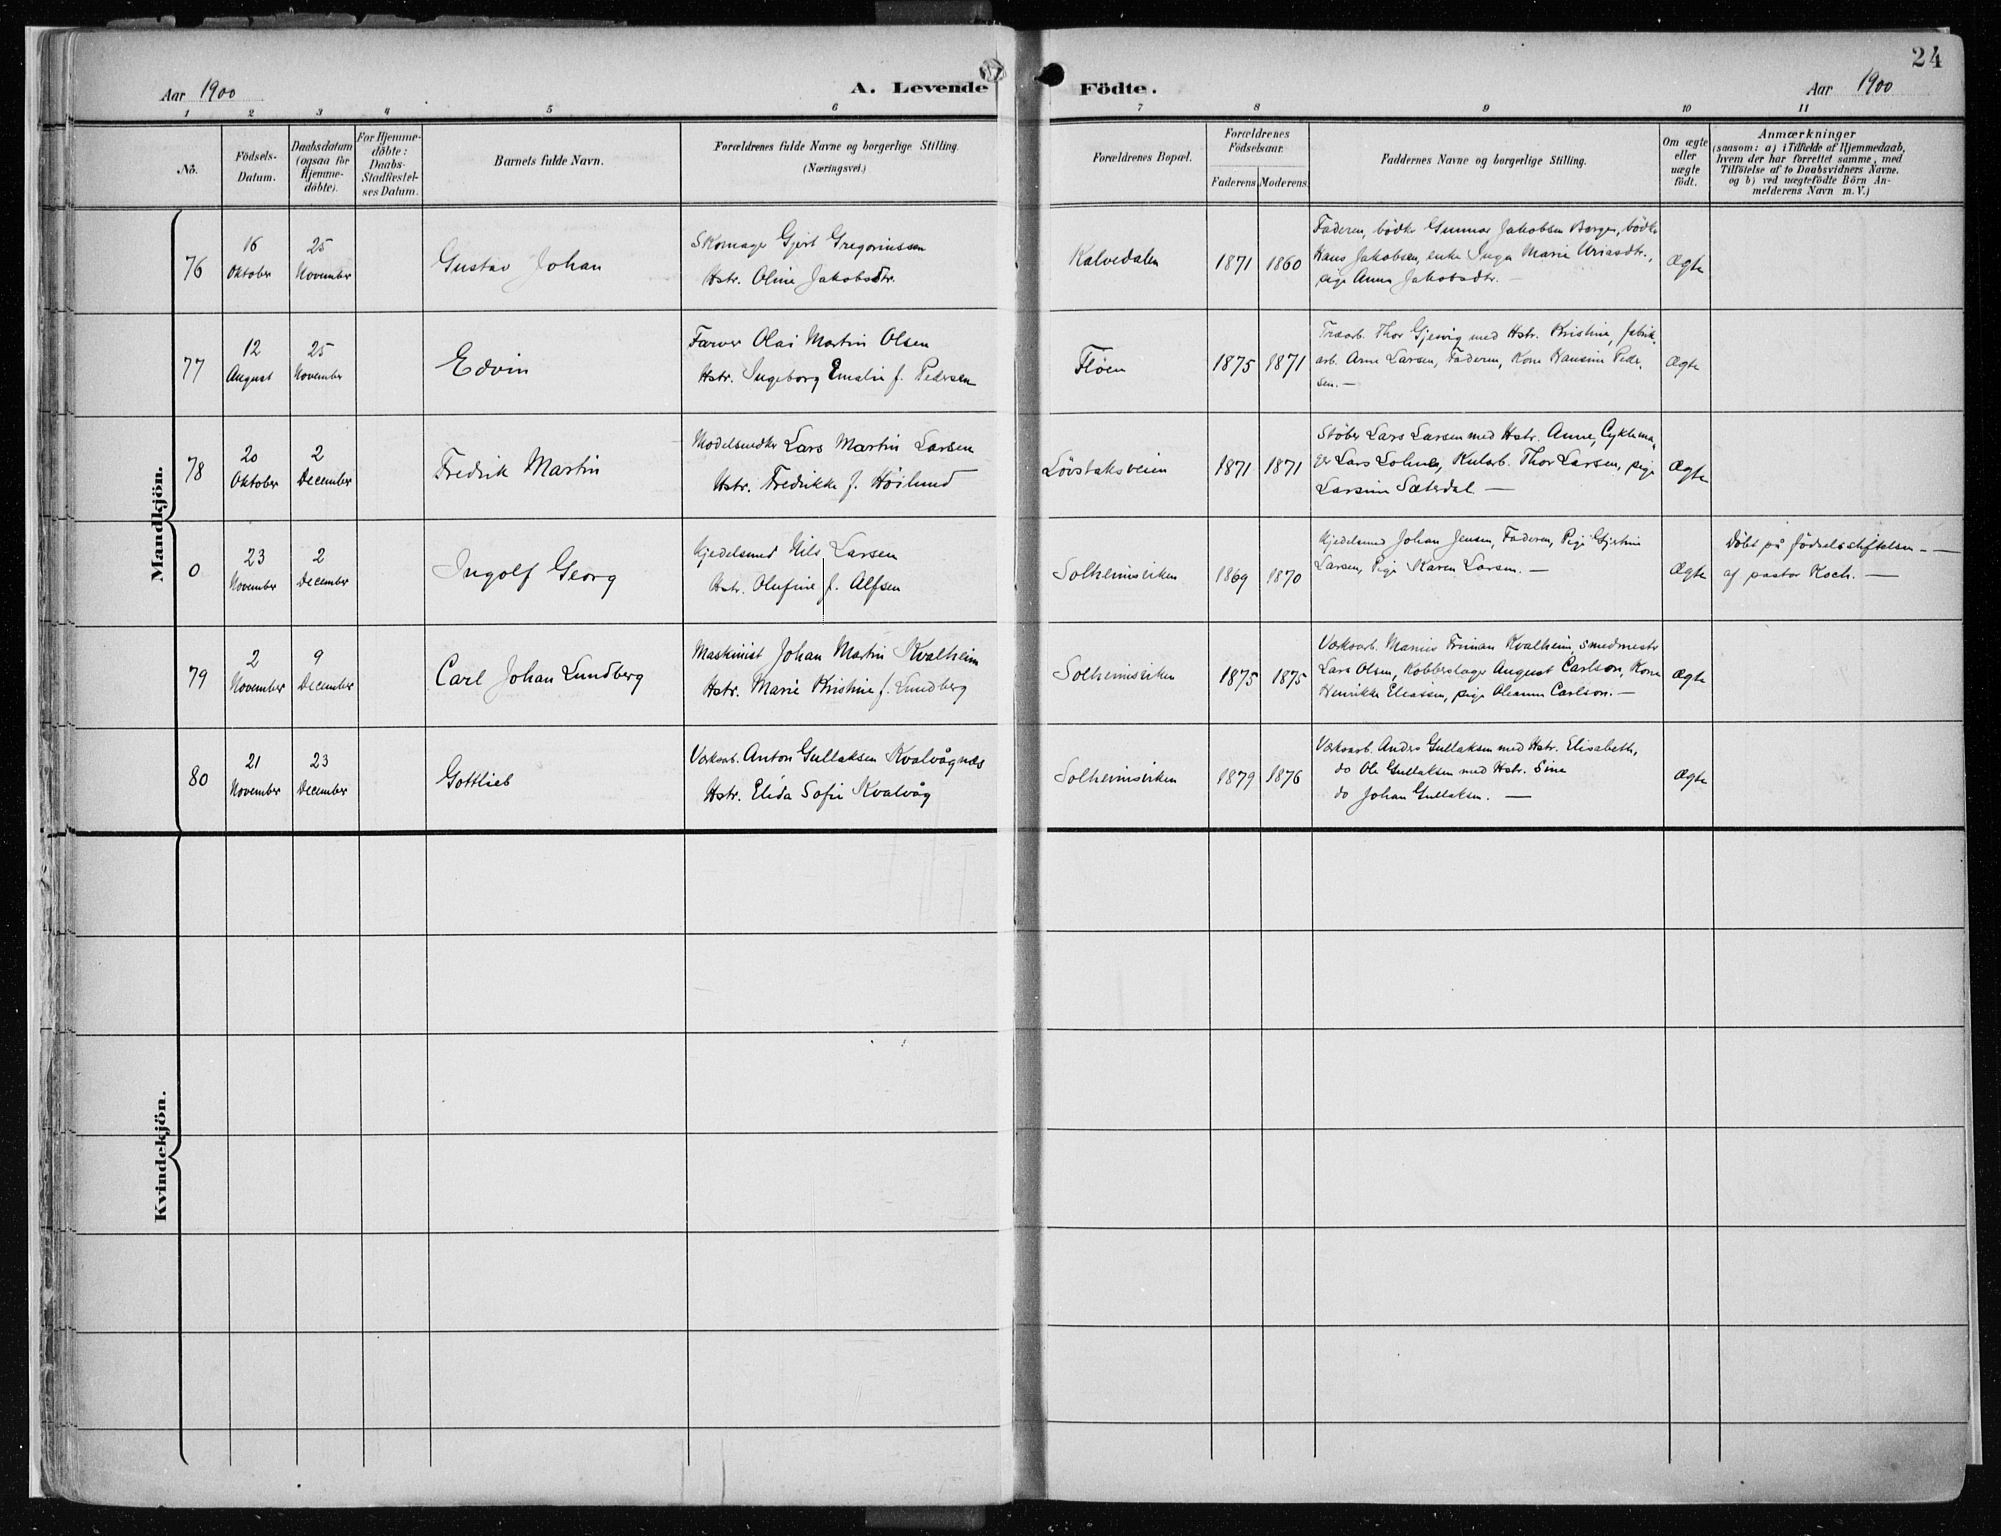 24
Aar 1900
A. Levende Födte.
Aar 1900
1 2 3 4 5 6 7 8 9 10 11
No.
Födsels-
Datum.
Daabsdatum
(ogsaa for
Hjemme-
döbte).
For Hjemme-
döbte:
Daabs-
Stadfæstel-
ses Datum.
Barnets fulde Navn.
Forældrenes fulde Navne og borgerlige Stilling.
(Næringsvei.)
Forældrenes Bopæl.
Forældrenes
Födselsaar.
Faderens Moderens
Faddernes Navne og borgerlige Stilling.
Om ægte
eller
uægte
födt.
Anmærkninger
(saasom: a) i Tilfælde af Hjemmedaab,
hvem der har forrettet samme, med
Tilföielse af to Daabsvidners Navne,
og b) ved uægtefödte Börn An-
melderens Navn m. V.)
Mandkjön.
76
16
Oktober
25
November
Gustav Johan
Skomager Gjert Gregoriussen
Hstr. Oline Jakobsdtr.
Kalvedalen
1871 1860
Faderen, bødker Gunnar Jakobsen Borgen, bødker
Hans Jakobsen, enke Inga Marie Uriasdtr.,
pige Anna Jakobsdtr. —
Ægte
77
12
August
25
November
Edvin
Farver Olai Martin Olsen
Hstr. Ingeborg Emalie f. Pedersen
Fløen
1875 1871
Træarb. Thor Gjesvig med Hstr. Kristine, fabrik-
arb. Arne Larsen, Faderen, Kone Hansine Peder-
sen. —
Ægte
78
20
Oktober
2
December
Fredrik Martin
Modelsnedker Lars Martin Larsen
Hstr. Fredrikke f. Høilund
Løvstaksveien
1871 1871
Støber Lars Larsen med Hstr. Anne, Cyklema-
ger Lars, Kularb. Thor Larsen, pige
Larsine Sæterdal —
Ægte
0
23
November
2
December
Ingolf Georg
Kjedelsmed Nils Larsen
Hstr. Olufine f. Alfsen
Solheimsviken
1869 1870
Kjedelsmed Johan Jensen, Faderen, Pige Gjertine
Larsen, Pige Karen Larsen. —
Ægte
Døbt på fødselsstiftelsen —
af pastor Koch. —
79
2
November
9
December
Carl Johan Lundberg
Maskinist Johan Martin Kvalheim
Hstr. Marie Kristine f. Lundberg
Solheimsviken
1875 1875
Værksarb. Kvalheim, smedmester
Lars Olsen, Kobberslager August Carlson, Kone
Henrikke Eliassen, pige Oleanna Carlson. —
Ægte
80
21
November
23
December
Gottlieb
Værksarb. Anton Gullaksen Kvalvågnæs
Hstr. Elida Sofie Kvalvåg
Solheimsviken
1879 1876
Værksarb. Anders Gullaksen med Hstr. Elisabeth,
do Ole Gullaksen med Hstr. Sine
do Johan Gullaksen. —
Ægte
Kvindekjön.